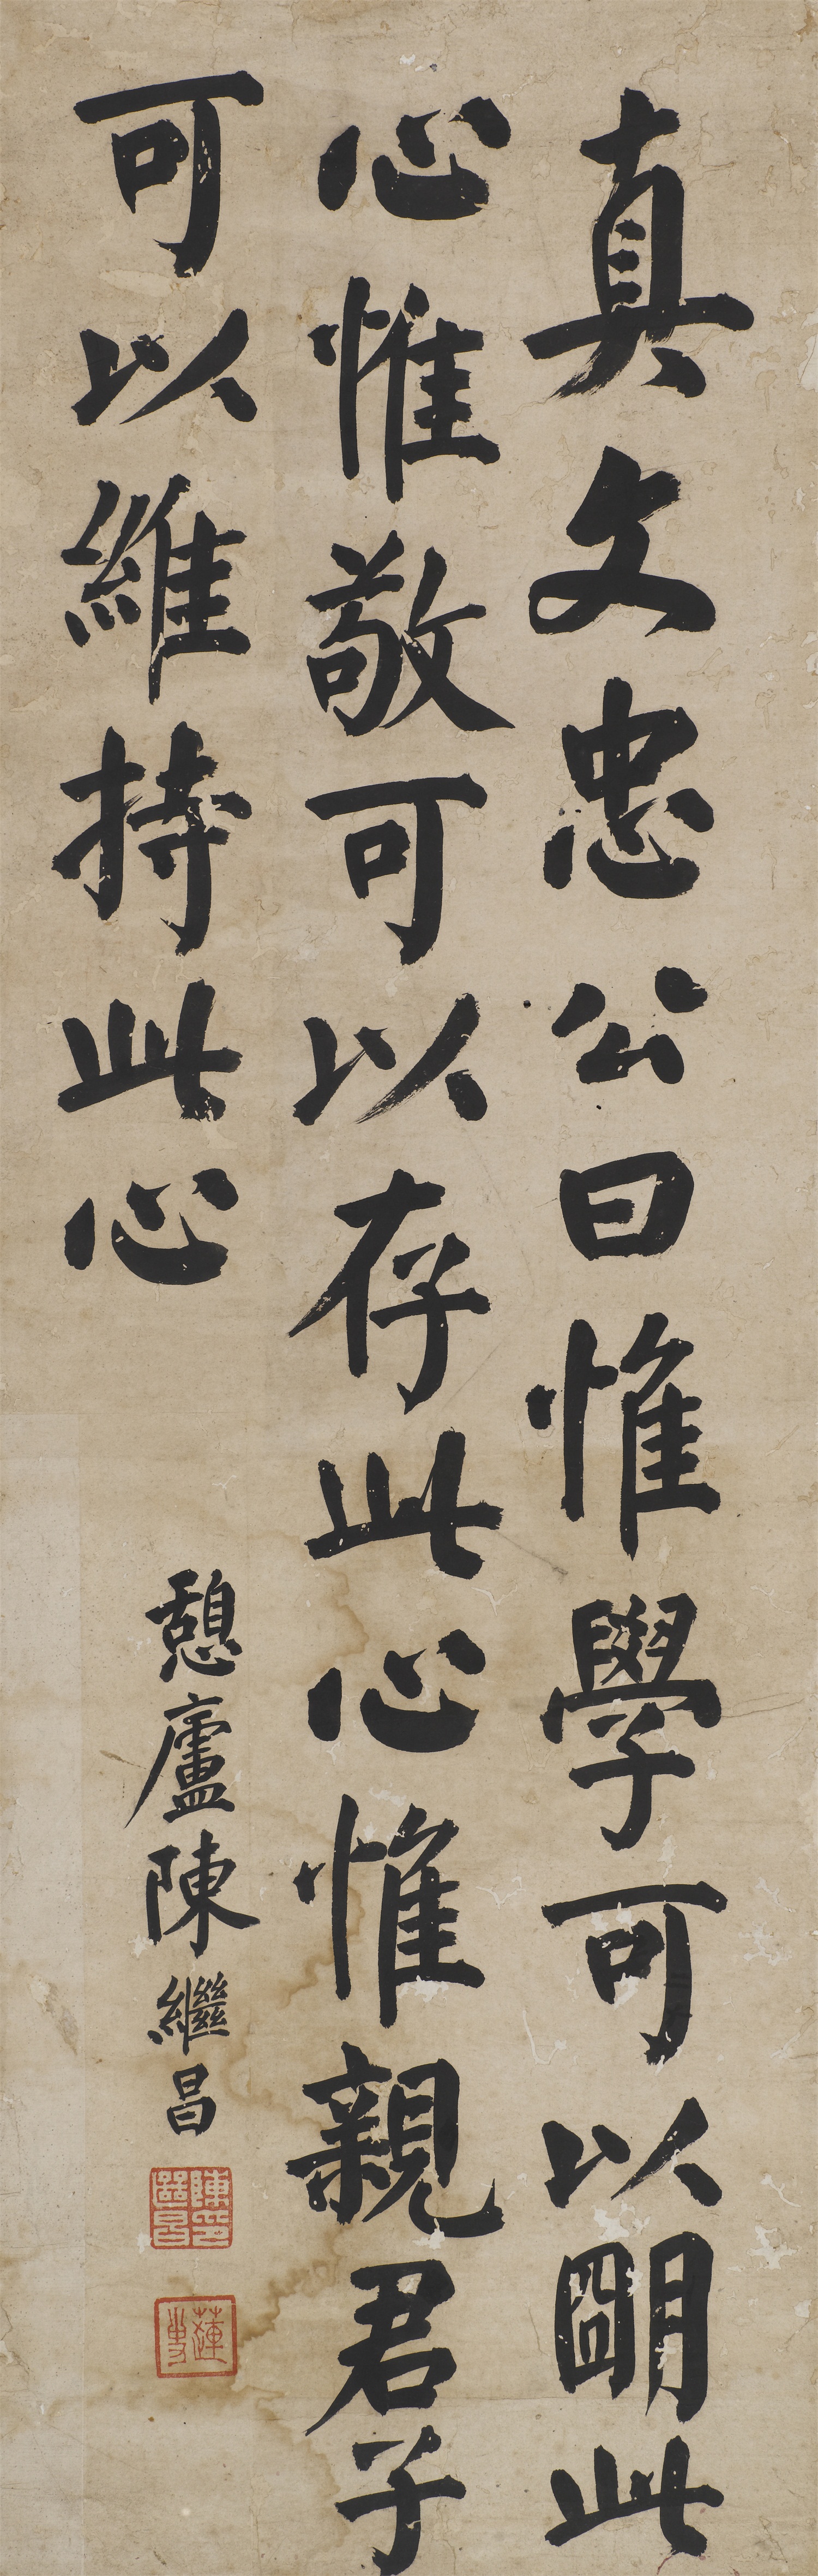 真文忠公曰惟學可以朙此
心惟敬可以存此心惟親君子
可以維持此心
憩廬陳繼昌
陳繼昌印
蓮史